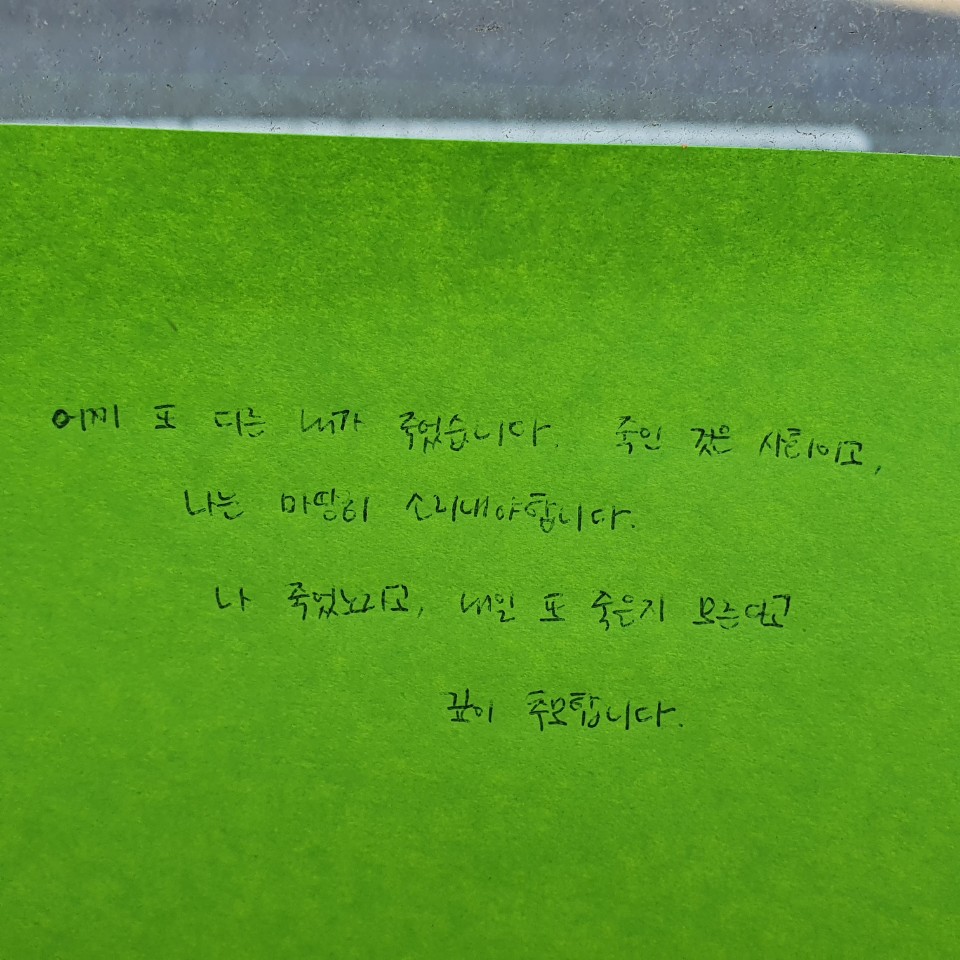 어제 또 다른 내가 죽었습니다. 죽인 것은 사회이고,
나는 마땅히 소리내야합니다.
나 죽었노라고, 내일 또 죽은지 모른다고
깊이 추모합니다.